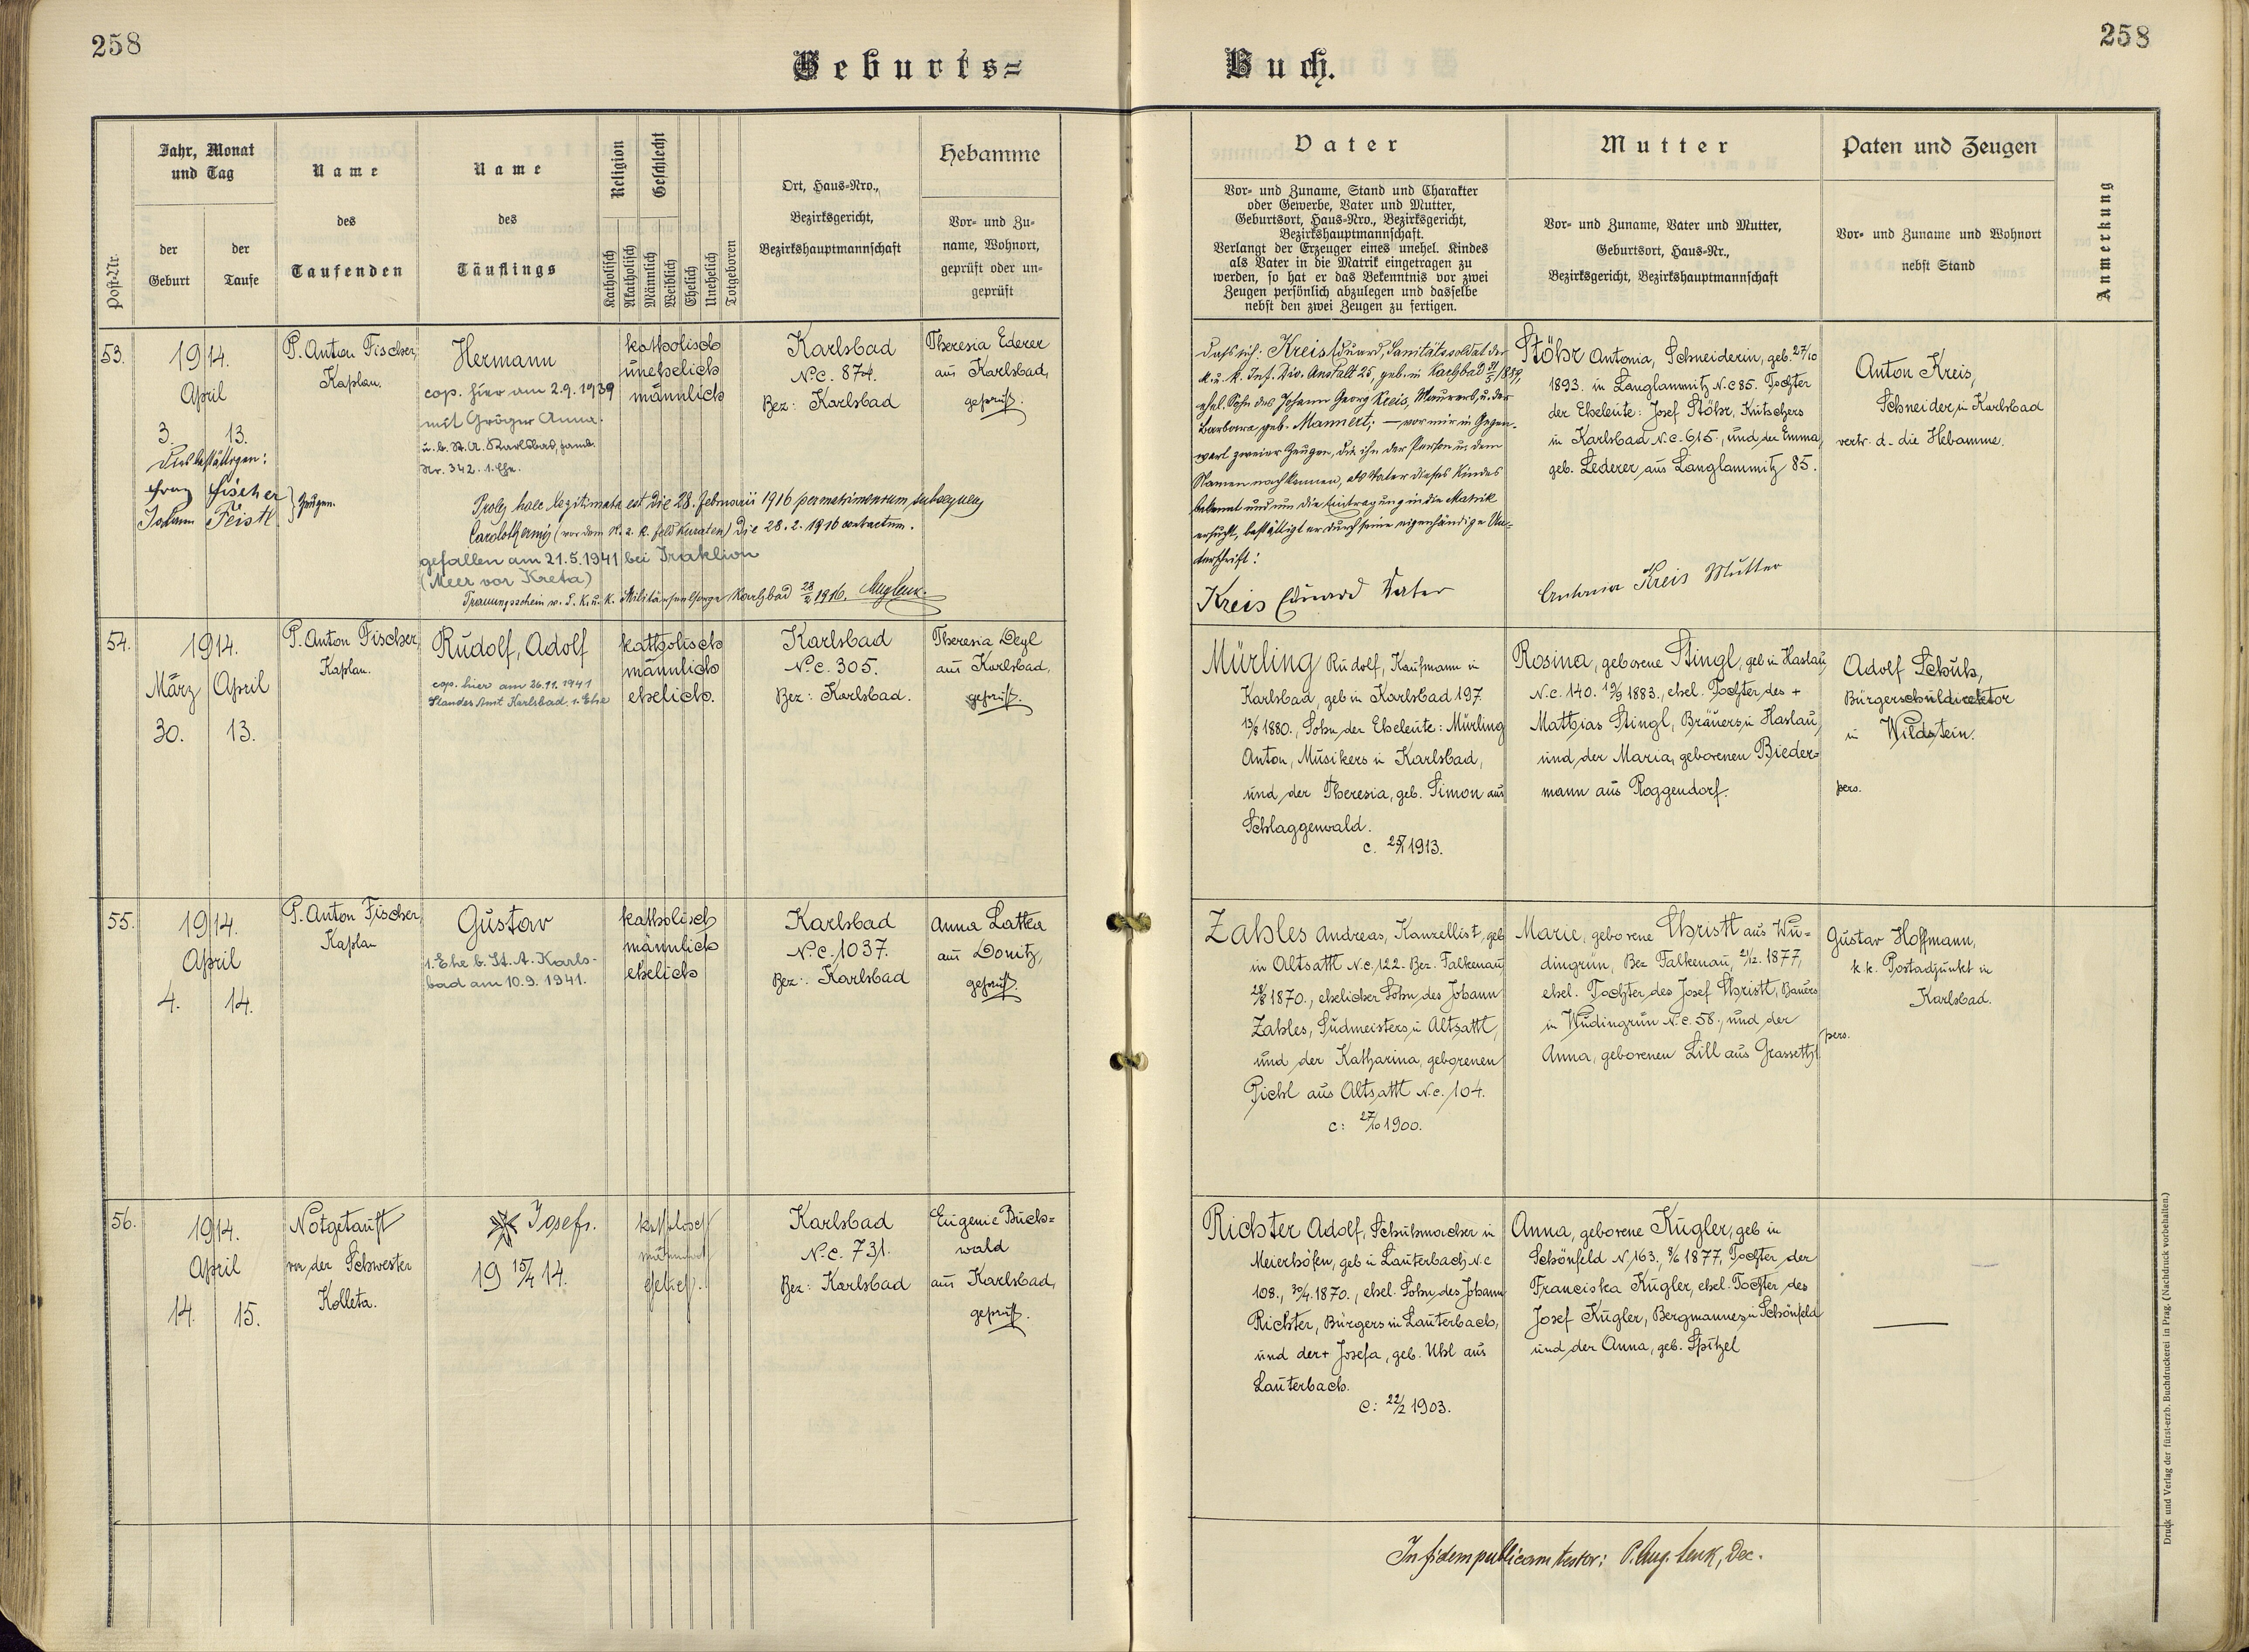 258
Geburts=
Jahr, Monat
und Tag
Name
Name
Religion
Geschlecht
Ort, Haus=Nro.,
Hebamme
des
des
Bezirksgericht,
Vor= und Zu=
der
der
Bezirkshauptmannschaft
name, Wohnort,
Post=Nr.
Geburt
Taufe
Taufenden
Täuflings
geprüft oder un=
geprüft
Katholisch
Akatholisch
Männlich
Weiblich
Ehelich
Unehelich
Totgeboren
53.
1914.
April
3.
13.
Dies bestättigen:
Franz Fischer
Johann Feistl
Zeugen.
P. Anton Fischer,
Kaplan.
Hermann
cop. hier am 2.9.1939
mit Gröger Anna.
u. b. St. A. Karlsbad, Famb.
Nr. 342. 1. Ehe.
katholisch
unehelich
männlich
Karlsbad
N.C. 874.
Bez: Karlsbad
Theresia Ederer
aus Karlsbad,
geprüft.
Proles haec legitimata est die 28. februarii 1916 per matrimonium subsequens
Carolothermis (vor dem K. u. K. Feldkuraten) die 28.2.1916 contractum.
gefallen am 21.5.1941 bei Iraklion
(Meer vor Kreta)
Trauungsschein v. d. K. u. K. Militärseelsorge Karlsbad 28/2 1916. Aug Lenk.
54.
1914.
März
April
30.
13.
P. Anton Fischer,
Kaplan.
Rudolf, Adolf
cop. hier am 26.11.1941
Standes Amt Karlsbad. 1. Ehe
katholisch
männlich
ehelich.
Karlsbad
N.C. 305.
Bez: Karlsbad.
Theresia Deyl
aus Karlsbad,
geprüft.
55.
1914.
April
4.
14.
P. Anton Fischer,
Kaplan
Gustav
1. Ehe b. St. A. Karls-
bad am 10.9.1941.
katholisch
männlich
ehelich
Karlsbad
N.C. 1037.
Bez: Karlsbad
Anna Latka
aus Donitz,
geprüft.
56.
1914.
April
14.
15.
Notgetauft
von der Schwester
Kolleta.
Josef.
19 15/4 14.
katholisch
männlich
ehelich.
Karlsbad
N.C. 731.
Bez: Karlsbad
Eugenie Buch=
wald
aus Karlsbad,
geprüft.
258
Buch.
Vater
Mutter
Paten und Zeugen
Anmerkung
Vor= und Zuname, Stand und Charakter
oder Gewerbe, Vater und Mutter,
Geburtsort, Haus=Nro., Bezirksgericht,
Bezirkshauptmannschaft.
Verlangt der Erzeuger eines unehel. Kindes
als Vater in die Matrik eingetragen zu
werden, so hat er das Bekenntnis vor zwei
Zeugen persönlich abzulegen und dasselbe
nebst den zwei Zeugen zu fertigen.
Vor= und Zuname, Vater und Mutter,
Geburtsort, Haus=Nr.,
Bezirksgericht, Bezirkshauptmannschaft
Vor= und Zuname und Wohnort
nebst Stand
Dass ich: Kreis Eduard, Sanitätssoldat der
K. u. K. Inf. Div. Anstalt 25, geb. in Karlsbad 31/5 1889,
ehel. Sohn des Johann Georg Kreis, Maurers, u. der
Barbara geb. Mannert; – vor mir in Gegen-
wart zweier Zeugen, die ihn der Person u. dem
Namen nach kennen, als Vater dieses Kindes
bekennt und um die Eintragung in die Matrik
ersucht, bestättigt er durch seine eigenhändige Un-
terschrift:
Kreis Eduard Vater
Stöhr Antonia, Schneiderin, geb. 27/10
1893. in Langlammitz N.C 85. Tochter
der Eheleute: Josef Stöhr, Kutschers
in Karlsbad N.C. 615., und der Emma,
geb. Lederer aus Langlammitz 85.
Antonia Kreis Mutter
Anton Kreis,
Schneider in Karlsbad
vertr. d. die Hebamme.
Mürling Rudolf, Kaufmann in
Karlsbad, geb in Karlsbad 197.
13/8 1880., Sohn der Eheleute: Mürling
Anton, Musikers in Karlsbad,
und der Theresia, geb. Simon aus
Schlaggenwald.
c. 25/1 1913.
Rosina, geborene Stingl, geb in Haslau,
N.C. 140. 19/9 1883., ehel. Tochter des +
Matthias Stingl, Bräuers in Haslau,
und der Maria, geborenen Bieder=
mann aus Roggendorf.
Adolf Schuh,
Bürgerschuldirektor
in Wildstein.
pers.
Zahles Andreas, Kanzellist, geb
in Altsattl N.C. 122. Bez. Falkenau,
28/8 1870., ehelicher Sohn des Johann
Zahles, Sudmeisters in Altsattl,
und der Katharina, geborenen
Pichl aus Altsattl N.C. 104.
c: 27/10 1900.
Marie, geborene Christl aus Wu=
dingrün, Bez Falkenau, 21/12. 1877,
ehel. Tochter des Josef Christl, Bauers
in Wudingrün N.C. 58., und der
Anna, geborenen Lill aus Grasseth.
Gustav Hoffmann,
k. k. Postadjunkt in
Karlsbad.
pers.
Richter Adolf, Schuhmacher in
Meierhöfen, geb in Lauterbach N.C
108., 30/4. 1870., ehel. Sohn des Johann
Richter, Bürgers in Lauterbach,
und der + Josefa, geb. Uhl aus
Lauterbach.
c: 22/2 1903.
Anna, geborene Kugler, geb in
Schönfeld N. 163., 8/6 1877, Tochter der
Franciska Kugler, ehel. Tochter des
Josef Kugler, Bergmannes in Schönfeld
und der Anna, geb. Spitzel
In fidem publicam testor: P. Aug. Lenk, Dec.
Druck und Verlag der fürst-erzb. Buchdruckerei in Prag. (Nachdruck vorbehalten.)